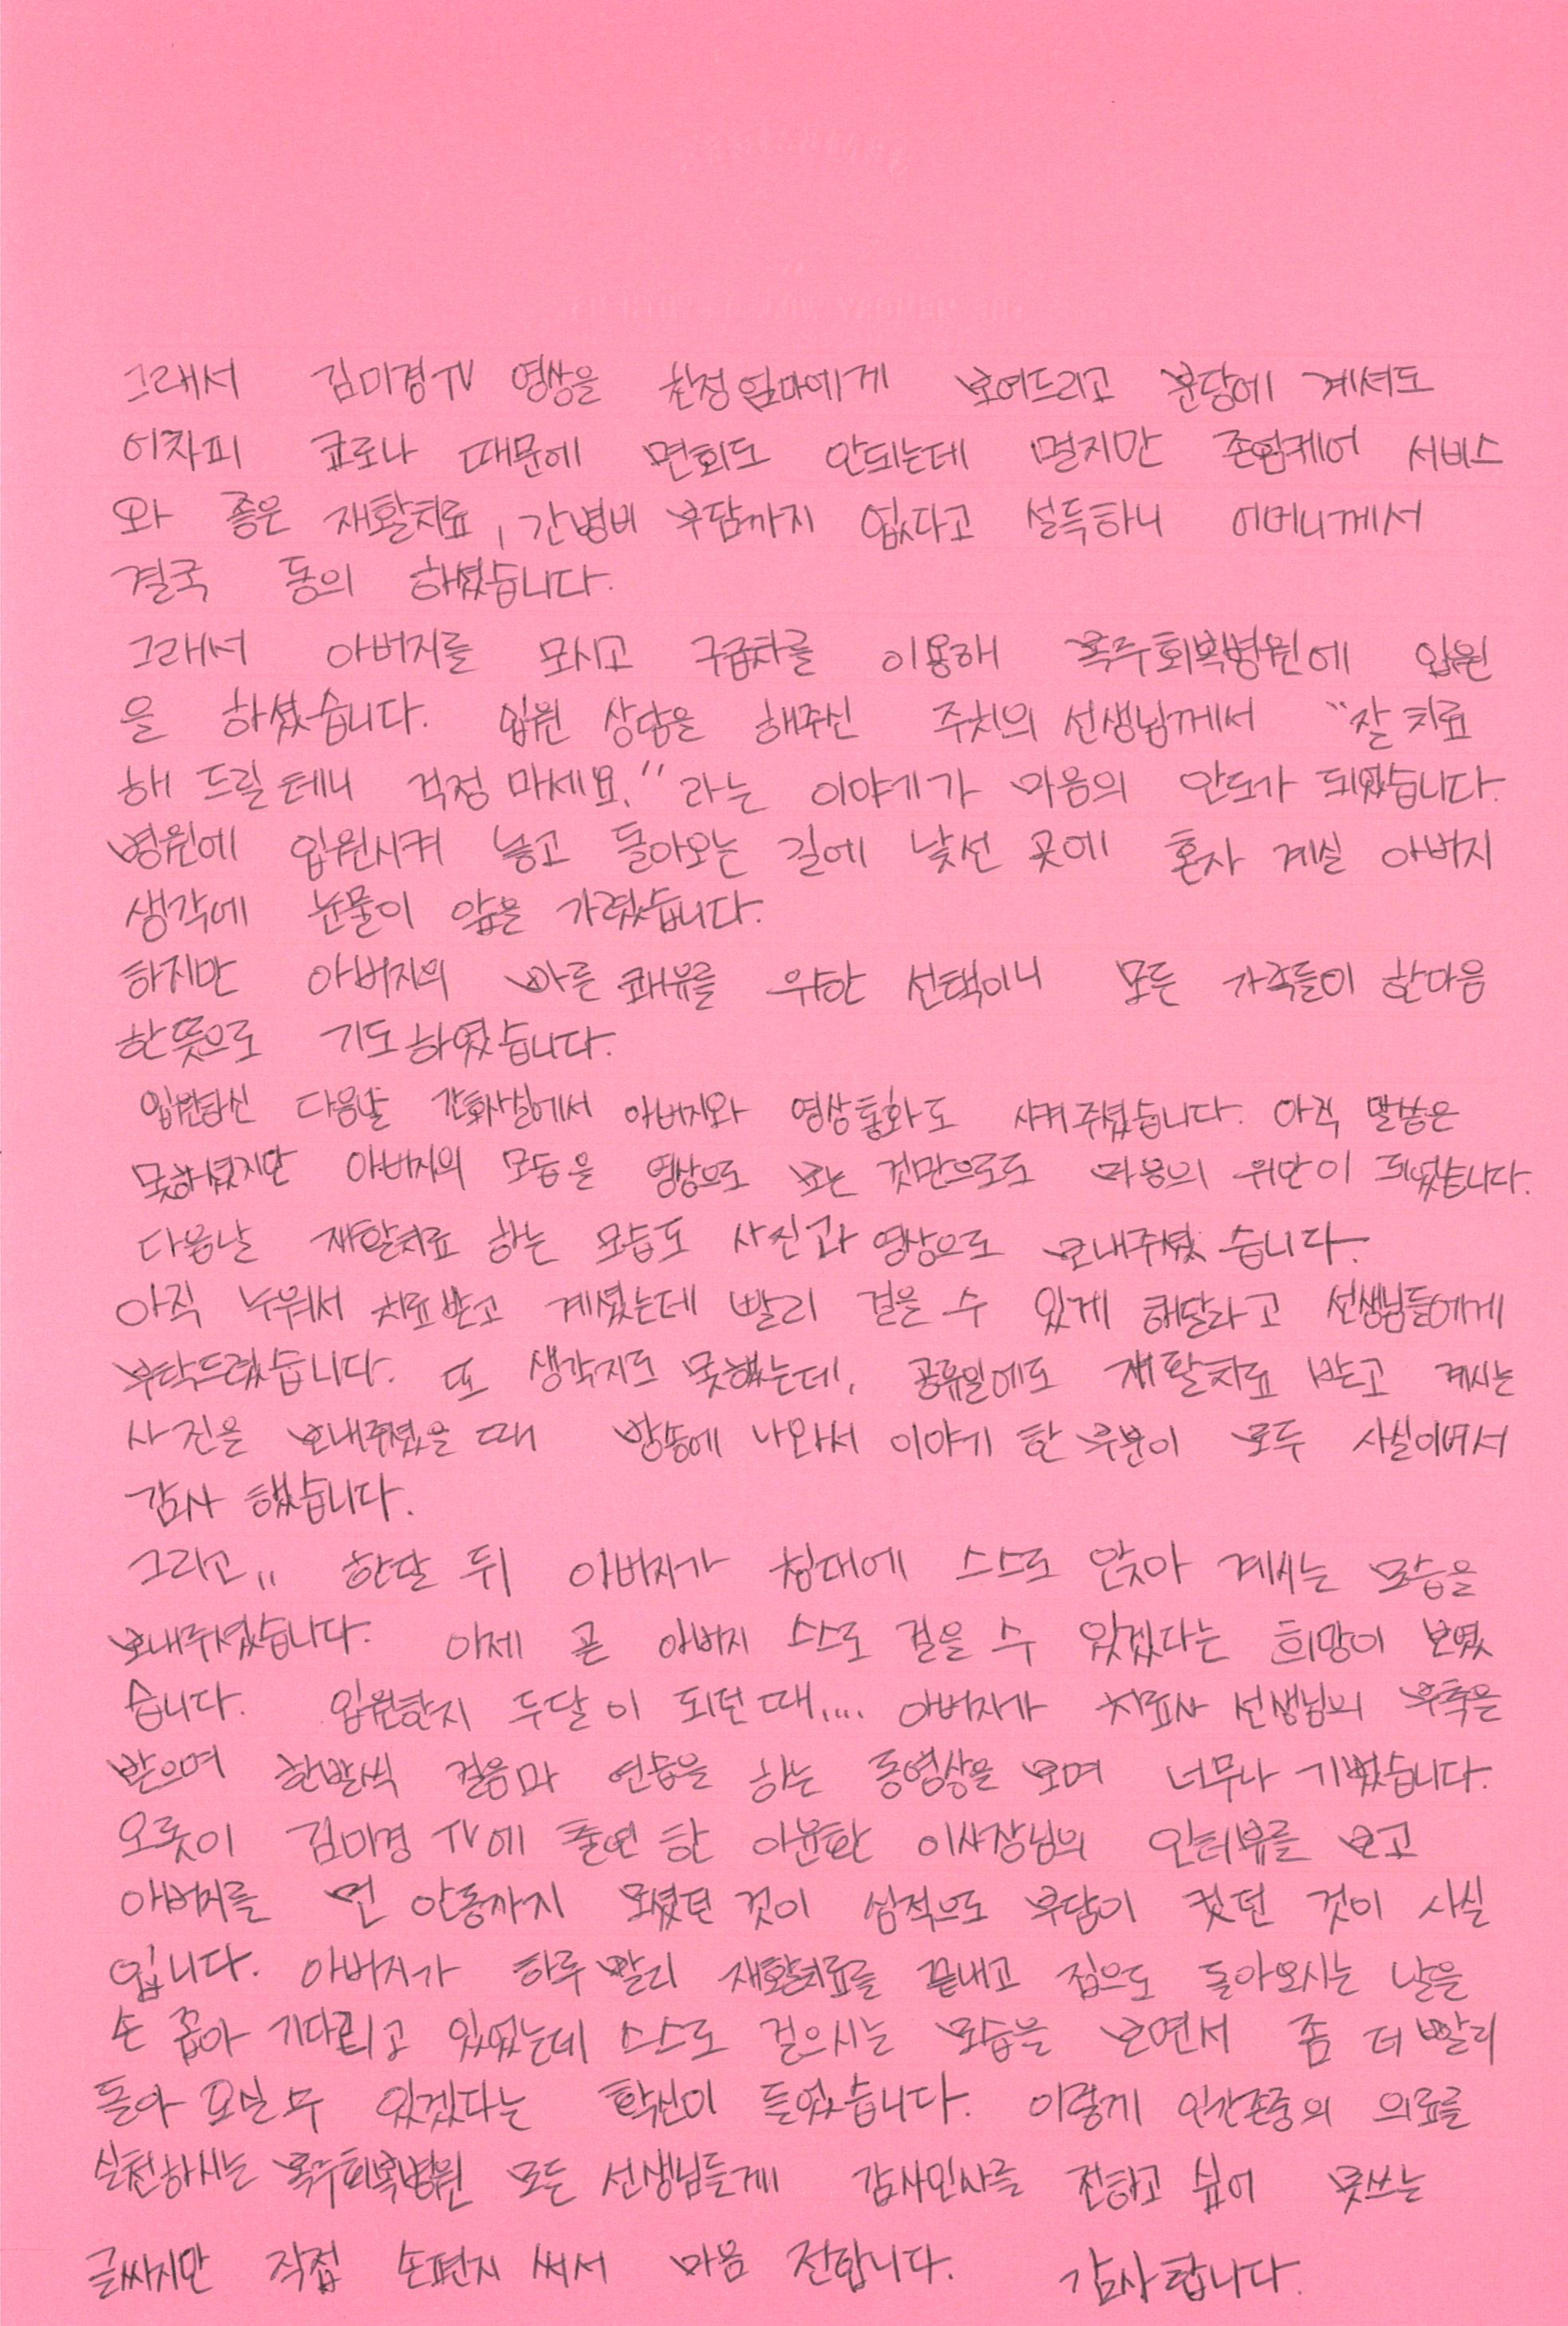 그래서 김미경TV 영상을 친정엄마에게 보여드리고 분당에 계셔도
어차피 코로나 때문에 면회도 안되는데 멀지만 존엄케어 서비스
와 좋은 재활치료, 간병비 부담까지 없다고 설득하니 어머니께서
결국 동의 하셨습니다.
그래서 아버지를 모시고 구급차를 이용해 복주회복병원에 입원
을 하셨습니다. 입원 상담을 해주신 주치의 선생님께서 "잘 치료
해 드릴테니 걱정 마세요." 라는 이야기가 마음의 안도가 되었습니다.
병원에 입원시켜 놓고 돌아오는 길에 낯선 곳에 혼자 계실 아버지
생각에 눈물이 앞을 가렸습니다.
하지만 아버지의 빠른 쾌유를 위한 선택이니 모든 가족들이 한마음
한뜻으로 기도하였습니다.
입원하신 다음날 간호사실에서 아버지와 영상통화도 시켜주셨습니다. 아직 말씀은
못하셨지만 아버지의 모습을 영상으로 보는 것만으로도 마음의 위안이 되었습니다.
다음날 재활치료 하는 모습도 사진과 영상으로 보내주셨습니다.
아직 누워서 치료받고 계셨는데 빨리 걸을 수 있게 해달라고 선생님들에게
부탁드렸습니다. 또 생각지도 못했는데, 공휴일에도 재활치료 받고 계시는
사진을 보내주셨을 때 방송에 나와서 이야기 한 부분이 모두 사실이여서
감사 했습니다.
그리고,, 한달 뒤 아버지가 침대에 스스로 앉아 계시는 모습을
보내주셨습니다. 이제 곧 아버지 스스로 걸을 수 있겠다는 희망이 보였
습니다. 입원한지 두달이 되던 때.... 아버지가 치료사 선생님의 부축을
받으며 한발씩 걸음마 연습을 하는 동영상을 보며 너무나 기뻤습니다.
오롯이 김미경 TV에 출연 한 이윤환 이사장님의 인터뷰를 보고
아버지를 먼 안동까지 모셨던 것이 심적으로 부담이 컸던 것이 사실
입니다. 아버지가 하루 빨리 재활치료를 끝내고 집으로 돌아오시는 날을
손 꼽아 기다리고 있었는데 스스로 걸으시는 모습을 보면서 좀 더 빨리
돌아 오실 수 있겠다는 확신이 들었습니다. 이렇게 인간존중의 의료를
실천하시는 복주회복병원 모든 선생님들께 감사인사를 전하고 싶어 못쓰는
글씨지만 직접 손편지 써서 마음 전합니다. 감사합니다.